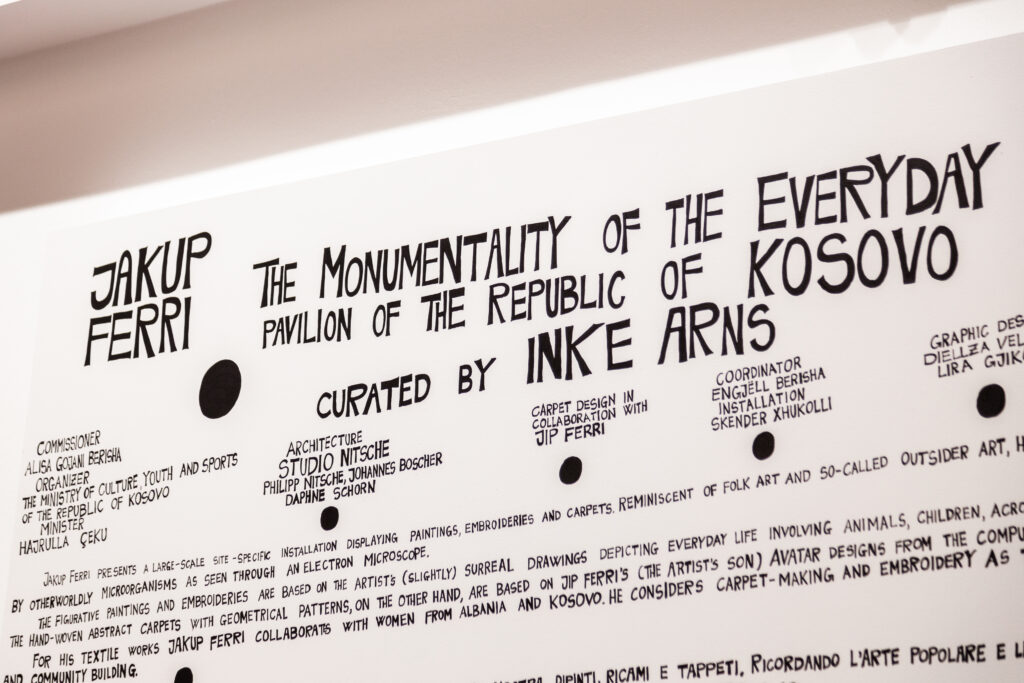 JAKUP
FERRI
THE MONUMENTALITY OF THE EVERYDAY
PAVILION OF THE REPUBLIC OF KOSOVO
CURATED BY INKE ARNS
COMMISSIONER
ALISA GOJANI BERISHA
ORGANIZER
THE MINISTRY OF CULTURE, YOUTH AND SPORTS
OF THE REPUBLIC OF KOSOVO
MINISTER
HAJRULLA ÇEKU
ARCHITECTURE
STUDIO NITSCHE
PHILIPP NITSCHE, JOHANNES BOSCHER
DAPHNE SCHORN
CARPET DESIGN IN
COLLABORATION WITH
JIP FERRI
COORDINATOR
ENGJËLL BERISHA
INSTALLATION
SKENDER XHUKOLLI
GRAPHIC DES
DIELLZA VEL
LIRA GJIK
JAKUP FERRI PRESENTS A LARGE-SCALE SITE-SPECIFIC INSTALLATION DISPLAYING PAINTINGS, EMBROIDERIES AND CARPETS. REMINISCENT OF FOLK ART AND SO-CALLED OUTSIDER ART, H
BY OTHERWORLDLY MICROORGANISMS AS SEEN THROUGH AN ELECTRON MICROSCOPE.
THE FIGURATIVE PAINTINGS AND EMBROIDERIES ARE BASED ON THE ARTIST'S (SLIGHTLY) SURREAL DRAWINGS DEPICTING EVERYDAY LIFE INVOLVING ANIMALS, CHILDREN, ACRO
THE HAND-WOVEN ABSTRACT CARPETS WITH GEOMETRICAL PATTERNS, ON THE OTHER HAND, ARE BASED ON JIP FERRI'S (THE ARTIST'S SON) AVATAR DESIGNS FROM THE COMPU
FOR HIS TEXTILE WORKS JAKUP FERRI COLLABORATIS WITH WOMEN FROM ALBANIA AND KOSOVO. HE CONSIDERS CARPET-MAKING AND EMBROIDERY AS T
AND COMMUNITY BUILDING.
DIPINTI, RICAMI E TAPPETI. RICORDANDO L'ARTE POPOLARE E L